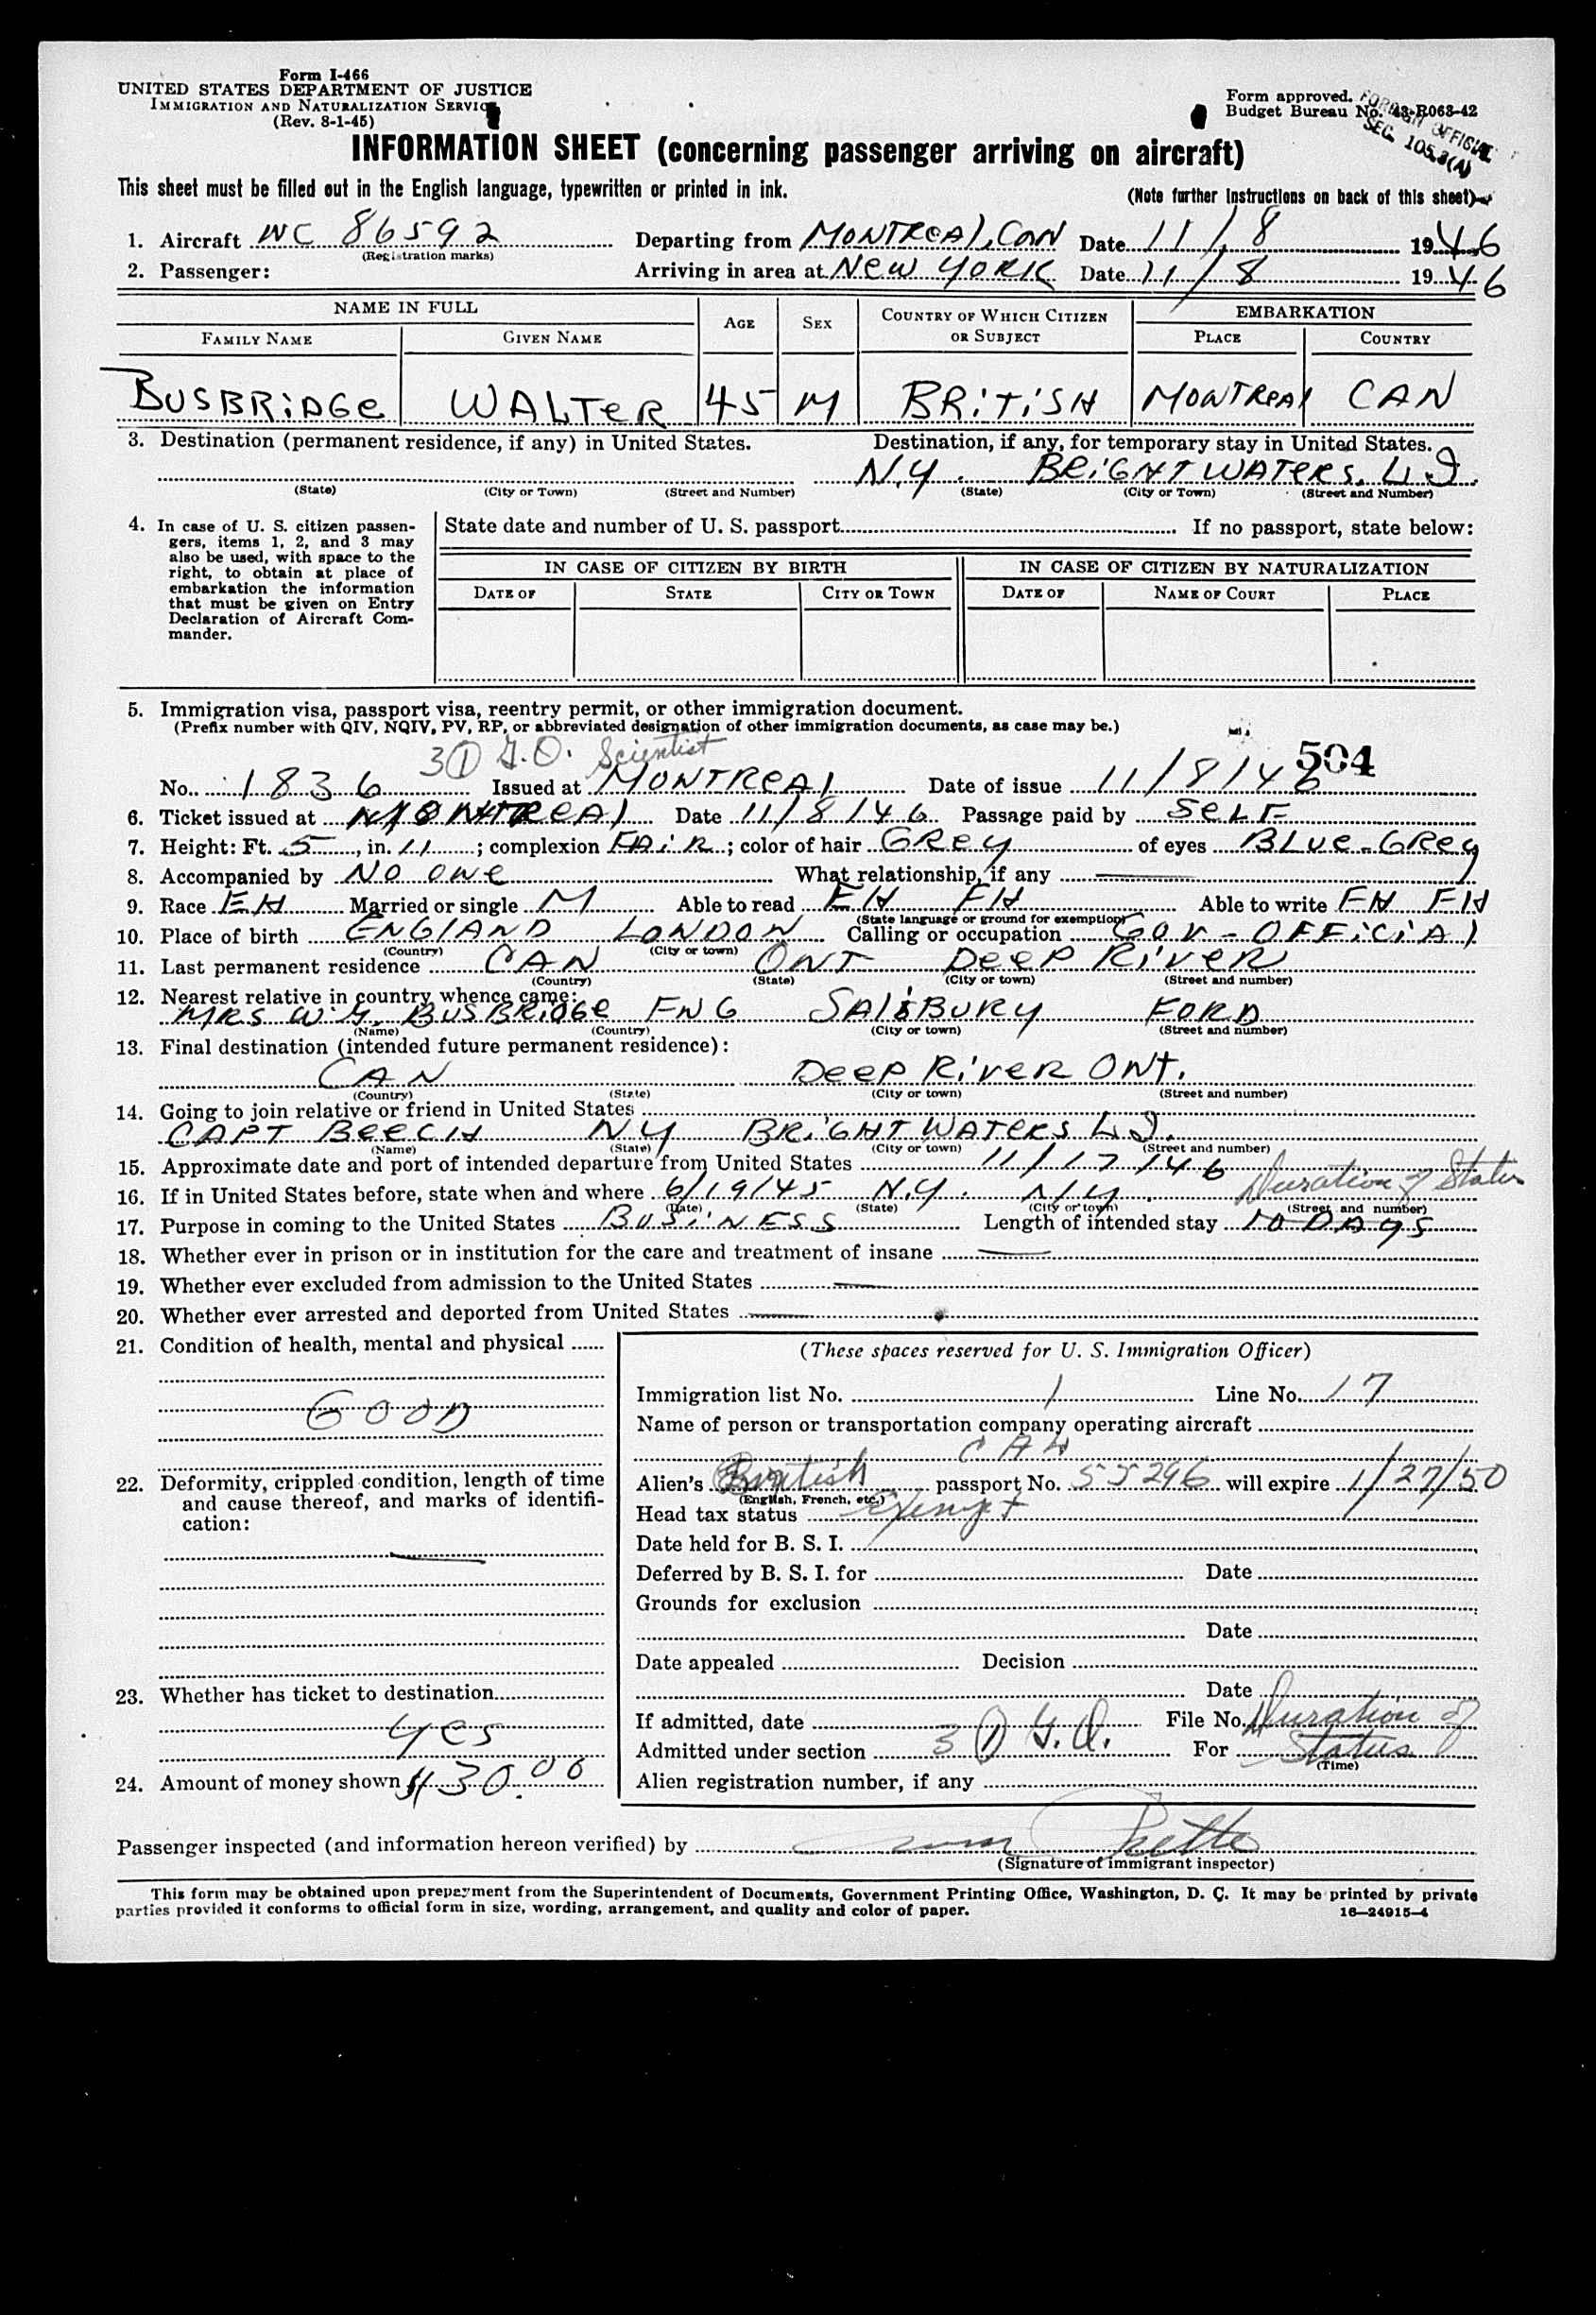 Form I-466
UNITED STATES DEPARTMENT OF JUSTICE
IMMIGRATION AND NATURALIZATION SERVICE
(Rev. 8-1-45)
Form approved.
Budget Bureau No. 43-R063-42
FOREIGN OFFICIAL
SEC. 105.3(A)
INFORMATION SHEET (concerning passenger arriving on aircraft)
This sheet must be filled out in the English language, typewritten or printed in ink. (Note further instructions on back of this sheet)
1. Aircraft NC 86592 Departing from MONTREAL, CAN Date 11/8 1946
(Registration marks)
2. Passenger: Arriving in area at NEW YORK Date 11/8 1946
NAME IN FULL AGE SEX COUNTRY OF WHICH CITIZEN OR SUBJECT EMBARKATION
FAMILY NAME GIVEN NAME PLACE COUNTRY
BUSBRIDGE WALTER 45 M BRITISH MONTREAL CAN
3. Destination (permanent residence, if any) in United States. Destination, if any, for temporary stay in United States.
N.Y. BRIGHTWATERS. L.I.
(State) (City or Town) (Street and Number) (State) (City or Town) (Street and Number)
4. In case of U. S. citizen passengers, items 1, 2, and 3 may also be used, with space to the right, to obtain at place of embarkation the information that must be given on Entry Declaration of Aircraft Commander.
State date and number of U. S. passport If no passport, state below:
IN CASE OF CITIZEN BY BIRTH IN CASE OF CITIZEN BY NATURALIZATION
DATE OF STATE CITY OR TOWN DATE OF NAME OF COURT PLACE
5. Immigration visa, passport visa, reentry permit, or other immigration document.
(Prefix number with QIV, NQIV, PV, RP, or abbreviated designation of other immigration documents, as case may be.)
3(1) G.O. Scientist
504
No. 1836 Issued at MONTREAL Date of issue 11/8/46
6. Ticket issued at MONTREAL Date 11/8/46 Passage paid by SELF
7. Height: Ft. 5, in. 11; complexion FAIR; color of hair GREY of eyes BLUE-GREY
8. Accompanied by NO ONE What relationship, if any
9. Race EH Married or single M Able to read EH FH Able to write EH FH
(State language or ground for exemption)
10. Place of birth ENGLAND LONDON Calling or occupation GOV-OFFICIAL
(Country) (City or town)
11. Last permanent residence CAN ONT DEEP RIVER
(Country) (State) (City or town) (Street and number)
12. Nearest relative in country whence came:
MRS W.G. BUSBRIDGE ENG SALISBURY FORD
(Name) (Country) (City or town) (Street and number)
13. Final destination (intended future permanent residence):
CAN DEEP RIVER ONT.
(Country) (State) (City or town) (Street and number)
14. Going to join relative or friend in United States
CAPT BEECH NY BRIGHTWATERS L.I.
(Name) (State) (City or town) (Street and number)
15. Approximate date and port of intended departure from United States 11/17/46
Duration of Status
16. If in United States before, state when and where 6/19/45 N.Y. N.Y.
(Date) (State) (City or town) (Street and number)
17. Purpose in coming to the United States BUSINESS Length of intended stay 10 DAYS
18. Whether ever in prison or in institution for the care and treatment of insane
19. Whether ever excluded from admission to the United States
20. Whether ever arrested and deported from United States
21. Condition of health, mental and physical
GOOD
22. Deformity, crippled condition, length of time and cause thereof, and marks of identification:
23. Whether has ticket to destination
YES
24. Amount of money shown $30.00
(These spaces reserved for U. S. Immigration Officer)
Immigration list No. 1 Line No. 17
Name of person or transportation company operating aircraft
Alien's British passport No. 55296 will expire 1/27/50
(English, French, etc.)
Head tax status Exempt
Date held for B. S. I.
Deferred by B. S. I. for Date
Grounds for exclusion
Date
Date appealed Decision
Date
If admitted, date File No. Duration of
Admitted under section 3(1) G.O. For Status
(Time)
Alien registration number, if any
Passenger inspected (and information hereon verified) by
(Signature of immigrant inspector)
This form may be obtained upon prepayment from the Superintendent of Documents, Government Printing Office, Washington, D. C. It may be printed by private
parties provided it conforms to official form in size, wording, arrangement, and quality and color of paper. 16—24915-4